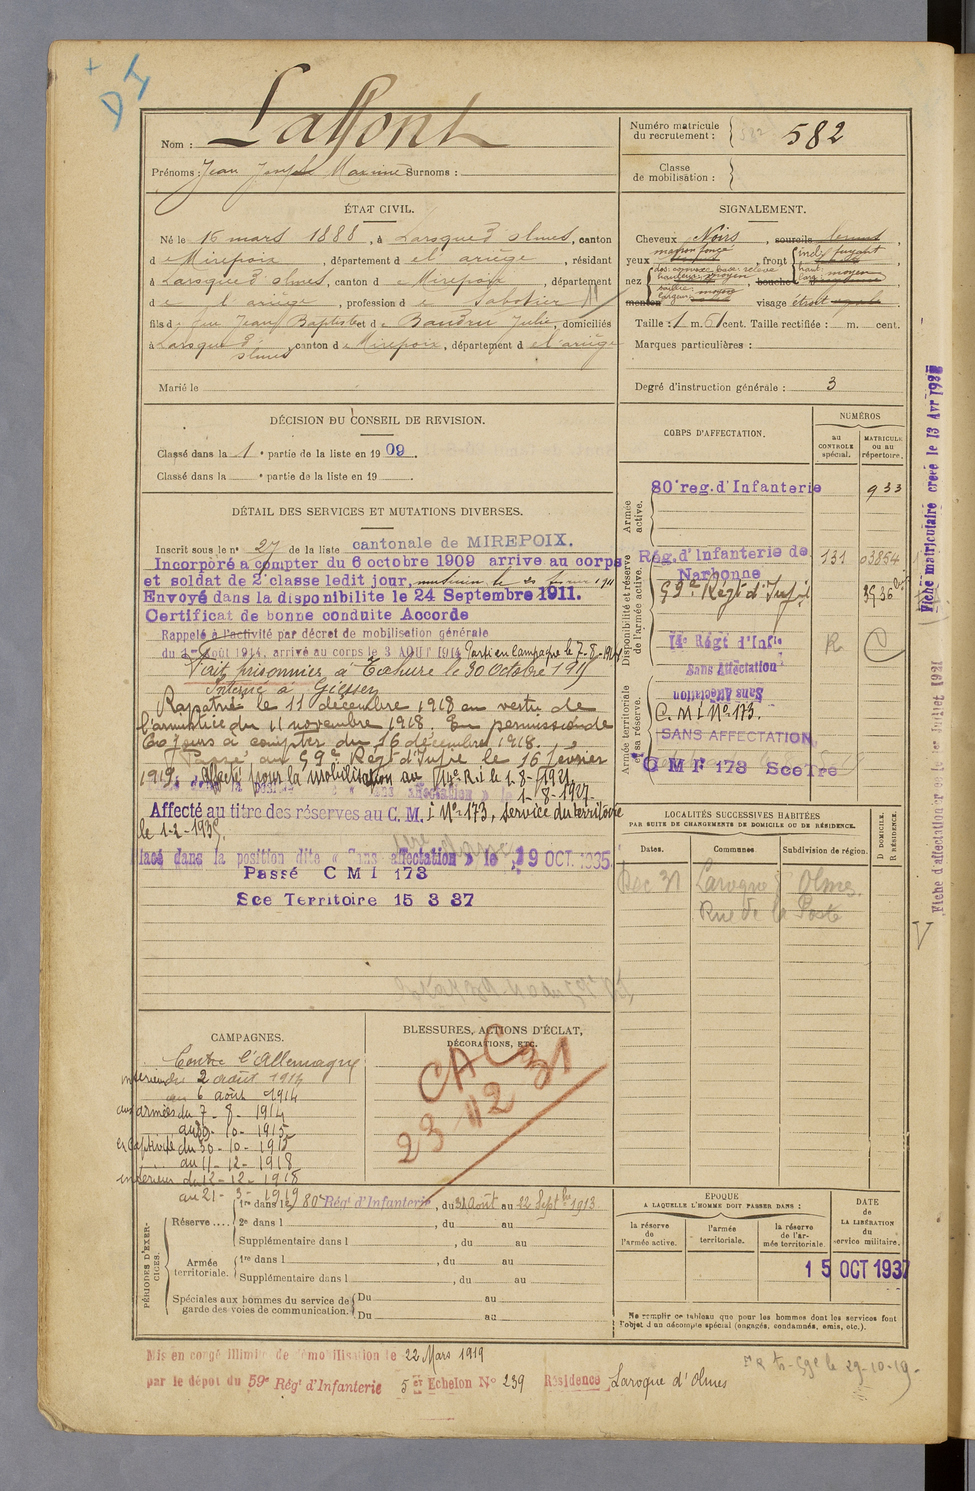 Nom : Laffont
Prénoms : Jean Joseph Maxime Surnoms :
Numéro matricule du recrutement : 582
Classe de mobilisation :
ÉTAT CIVIL.
Né le 16 mars 1888, à Laroque d'olmes, canton
d e Mirepoix, département d el ariège, résidant
à Laroque d'olmes, canton d e Mirepoix, département
d e l ariège, profession d e Sabotier
fils d e feu Jean Baptiste et d e Baudru Julie, domiciliés
à Laroque d'olmes, canton d e Mirepoix, département d e l'ariège
Marié le
SIGNALEMENT.
Cheveux Noirs, sourcils
yeux marron foncé, front incl: fuyant
nez dos: convexe base: relevé
bouche moyen
menton visage étroit
Taille : 1 m. 61 cent. Taille rectifiée : m. cent.
Marques particulières :
Degré d'instruction générale : 3
DÉCISION DU CONSEIL DE REVISION.
Classé dans la 1e partie de la liste en 1909.
Classé dans la e partie de la liste en 19
DÉTAIL DES SERVICES ET MUTATIONS DIVERSES.
Inscrit sous le n° 27 de la liste cantonale de MIREPOIX.
Incorporé à compter du 6 octobre 1909 arrive au corps
et soldat de 2e classe ledit jour,
Envoyé dans la disponibilite le 24 Septembre 1911.
Certificat de bonne conduite Accorde
Rappelé à l'activité par décret de mobilisation générale
du 2 Août 1914, arrivé au corps le 3 AOUT 1914 Parti en campagne le 7-8-1914
Fait prisonnier à Tahure le 30 Octobre 1915
Interné à Giessen
Rapatrié le 11 décembre 1918 en vertu de
l'armistice du 11 novembre 1918. En permission de
60 jours à compter du 16 décembre 1918.
Passé au 59e Régt d'Infie le 16 février
1919. Affecté pour la mobilisation au 14e R.i le 1-8-1921
1-8-1927.
Affecté au titre des réserves au C. M. I N° 173, service du territoire
le 1-2-1935.
lacé dans la position dite « Sans affectation » le 19 OCT. 1935
Passé C M I 173
Sce Territoire 15 3 37
CORPS D'AFFECTATION.
NUMÉROS
au CONTROLE spécial.
MATRICULE ou au répertoire.
Armée active.
80e reg. d'Infanterie 933
Disponibilité et réserve de l'armée active.
Rég. d'Infanterie de Narbonne 131 03854
59e Régt d'Infie 3536
14e Régt d'Infie R
Sans Affectation
Armée territoriale et sa réserve.
Sans Affectation
C. M I N° 173.
SANS AFFECTATION
C M I 173 Sce Tre
LOCALITÉS SUCCESSIVES HABITÉES
PAR SUITE DE CHANGEMENTS DE DOMICILE OU DE RÉSIDENCE.
Dates. Communes. Subdivision de région. D DOMICILE. R RÉSIDENCE.
Dec 31 Laroque d' Olmes.
Rue de la Poste
CAMPAGNES.
Contre l'Allemagne
intérieur du 2 août 1914
au 6 août 1914
aux armées du 7-8-1914
au 30-10-1915
en captivité du 30-10-1915
au 11-12-1918
intérieur du 12-12-1918
au 21-3-1919
BLESSURES, ACTIONS D'ÉCLAT, DÉCORATIONS, ETC.
CAC 31
23 12
PÉRIODES D'EXERCICES.
Réserve .... 1re dans le 80e Régt d'Infanterie, du 31 août au 22 Septbre 1913.
2e dans l , du au
Supplémentaire dans l , du au
Armée territoriale. 1re dans l , du au
Supplémentaire dans l , du au
Spéciales aux hommes du service de garde des voies de communication. Du au
Du au
EPOQUE
A LAQUELLE L'HOMME DOIT PASSER DANS :
la réserve de l'armée active.
l'armée territoriale.
la réserve de l'armée territoriale.
DATE DE LA LIBÉRATION du service militaire.
15 OCT 1937
Ne remplir ce tableau que pour les hommes dont les services font
l'objet d'un décompte spécial (engagés, condamnés, omis, etc.).
Mis en congé illimité de démobilisation le 22 Mars 1919
par le dépot du 59e Régt d'Infanterie 5e Echelon N° 239 Résidence Laroque d'Olmes
le 29-10-19
Fiche matriculaire créée le 13 Avr 1937
Fiche d'affectation le 1er Juillet 1931